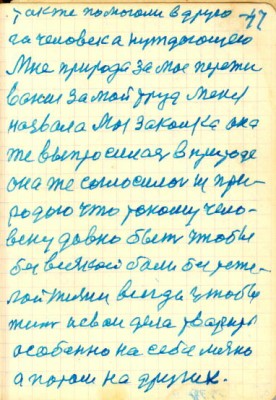 также помогали в друго 47
га человека нуждающего
Мне природа за мое пережи
вание за мой труд меня
назвала Моя закалка она
же выпросилась в природе
она же согласилась и при-
родою что такому чело-
веку давно быть чтобы
без всякой боли без тяже-
лой жизни всегда чтобы
жить и свои дела творить
особенно на себе мягко
а потом на других.